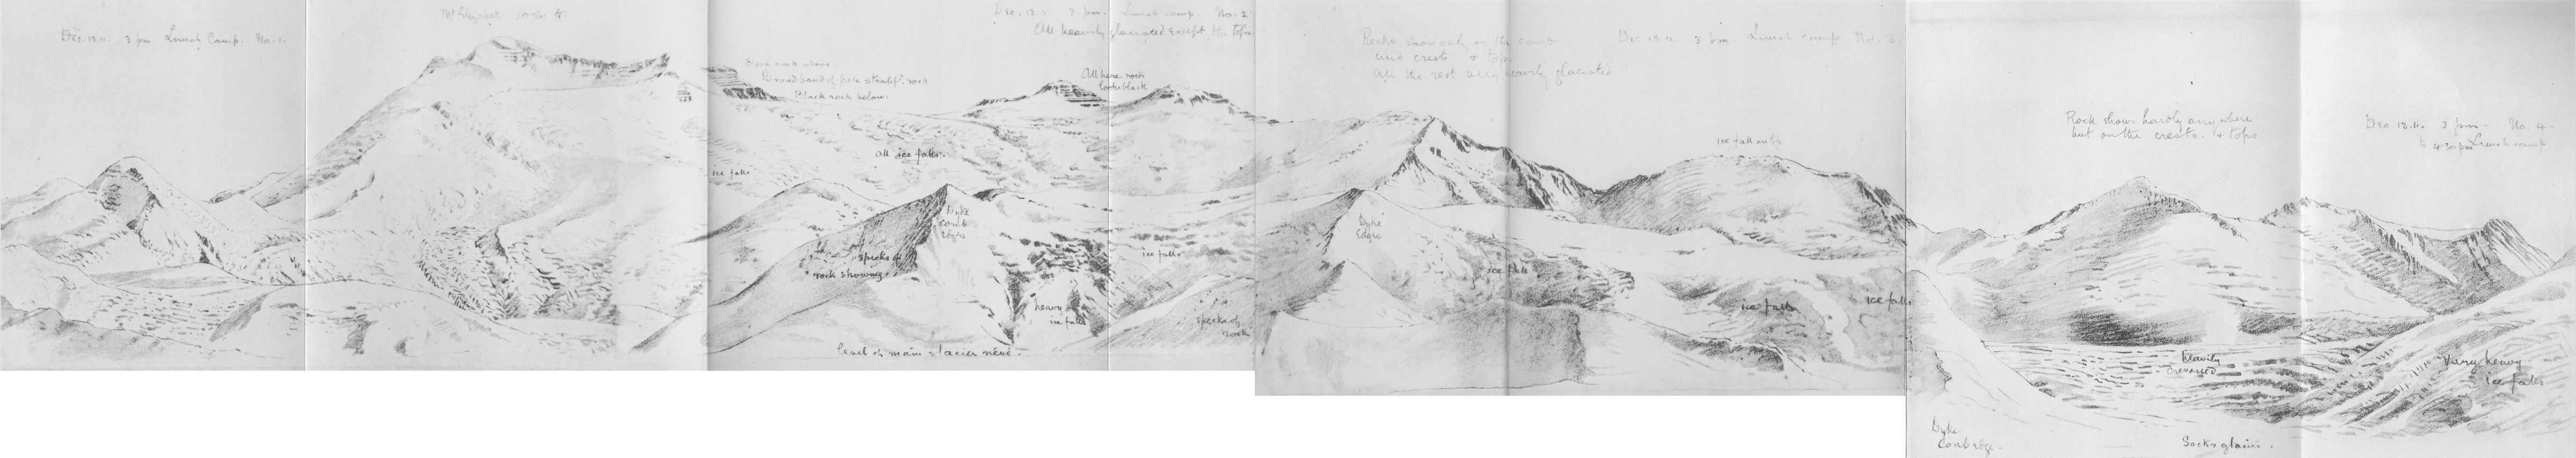 Dec. 18. 11. 3 pm. Lunch Camp. No. 1.
Mt Elizabeth
Dec. 18. 11. 3 pm. Lunch camp. No. 2
All heavily glaciated except the tops
Black rock above.
Broad band of pale stratif. rock
Black rock below.
All here rock
looks black
all ice falls.
ice falls
Dyke
comb
edge
specks of
rock showing.
ice falls
heavy
ice falls
specks of
rock
Level of main glacier névé.
Rocks show only on the combs
and crests & tops
all the rest very heavily glaciated
Dec. 18. 11. 3 pm. Lunch camp. No. 3.
ice fall
Dyke
Edge
ice falls
ice falls
ice falls
Rock shows hardly anywhere
but on the crests. & tops
Dec. 18. 11. 3 pm. No. 4
to 4.30 pm Lunch camp
heavily
crevassed
Very heavy
ice falls
Dyke
comb edge.
Socks glacier.